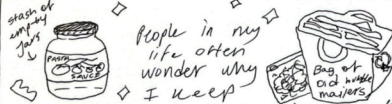 stash of
empty
jars
PASTA
SAUCE
People in my
life often
wonder why
I keep
Bag of
Old bubble
mailers